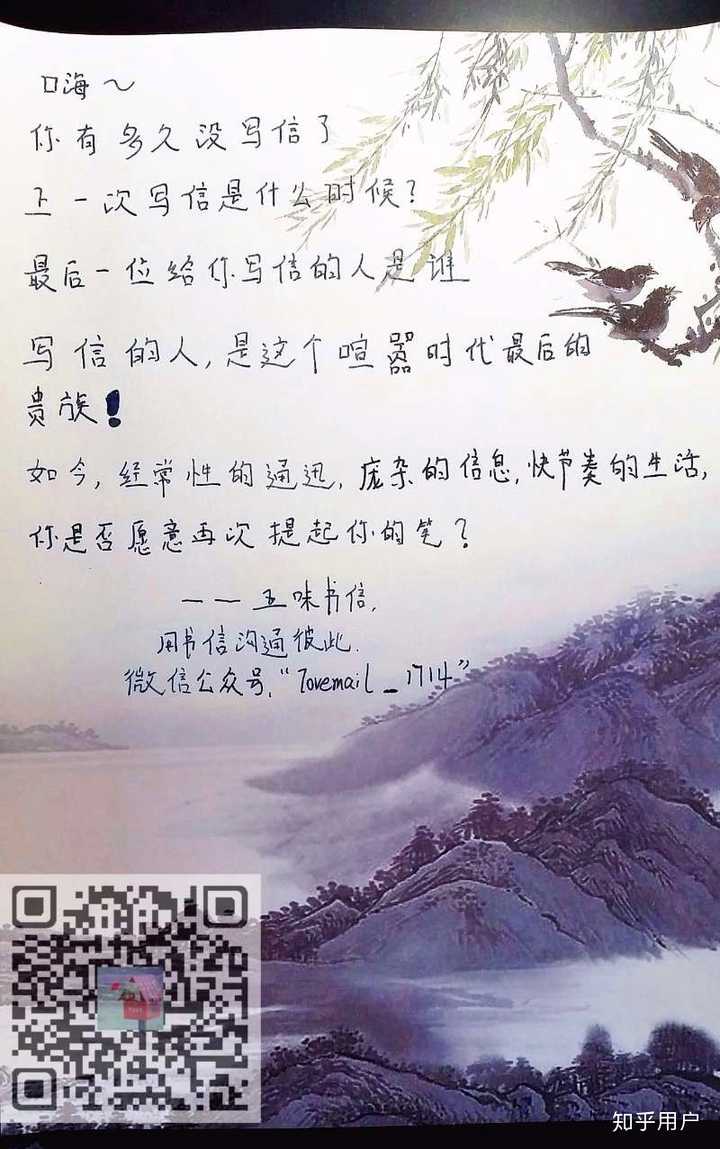 嗨～
你有多久没写信了
上一次写信是什么时候？
最后一位给你写信的人是谁
写信的人，是这个喧嚣时代最后的
贵族！
如今，经常性的通迅，庞杂的信息，快节奏的生活，
你是否愿意再次提起你的笔？
——五味书信，
用书信沟通彼此.
微信公众号，“lovemail_1714”
知乎用户